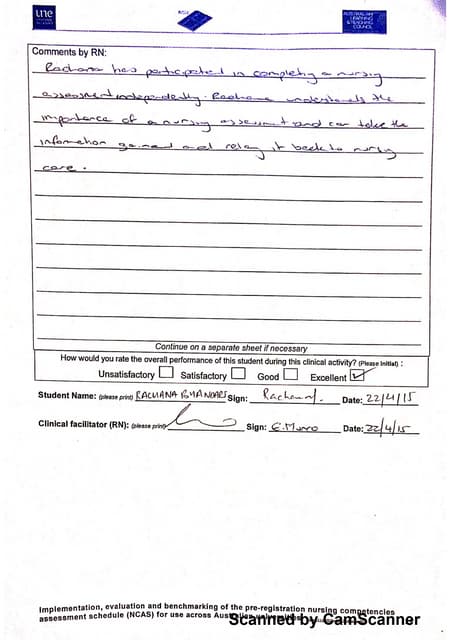 une
AUSTRALIAN
LEARNING
& TEACHING
COUNCIL
Comments by RN:
Rachana has participated in completing a nursing
assessment independently. Rachana understands the
importance of a nursing assessment and can take the
information gained and relay it back to nursing
care.
Continue on a separate sheet if necessary
How would you rate the overall performance of this student during this clinical activity? (Please Initial) :
Unsatisfactory Satisfactory Good Excellent ✓
Student Name: (please print) RACHANA Sign: Rachana Date: 22/4/15
Clinical facilitator (RN): (please print) Sign: E. Munro Date: 22/4/15
Implementation, evaluation and benchmarking of the pre-registration nursing competencies
assessment schedule (NCAS) for use across Australian universities
Scanned by CamScanner